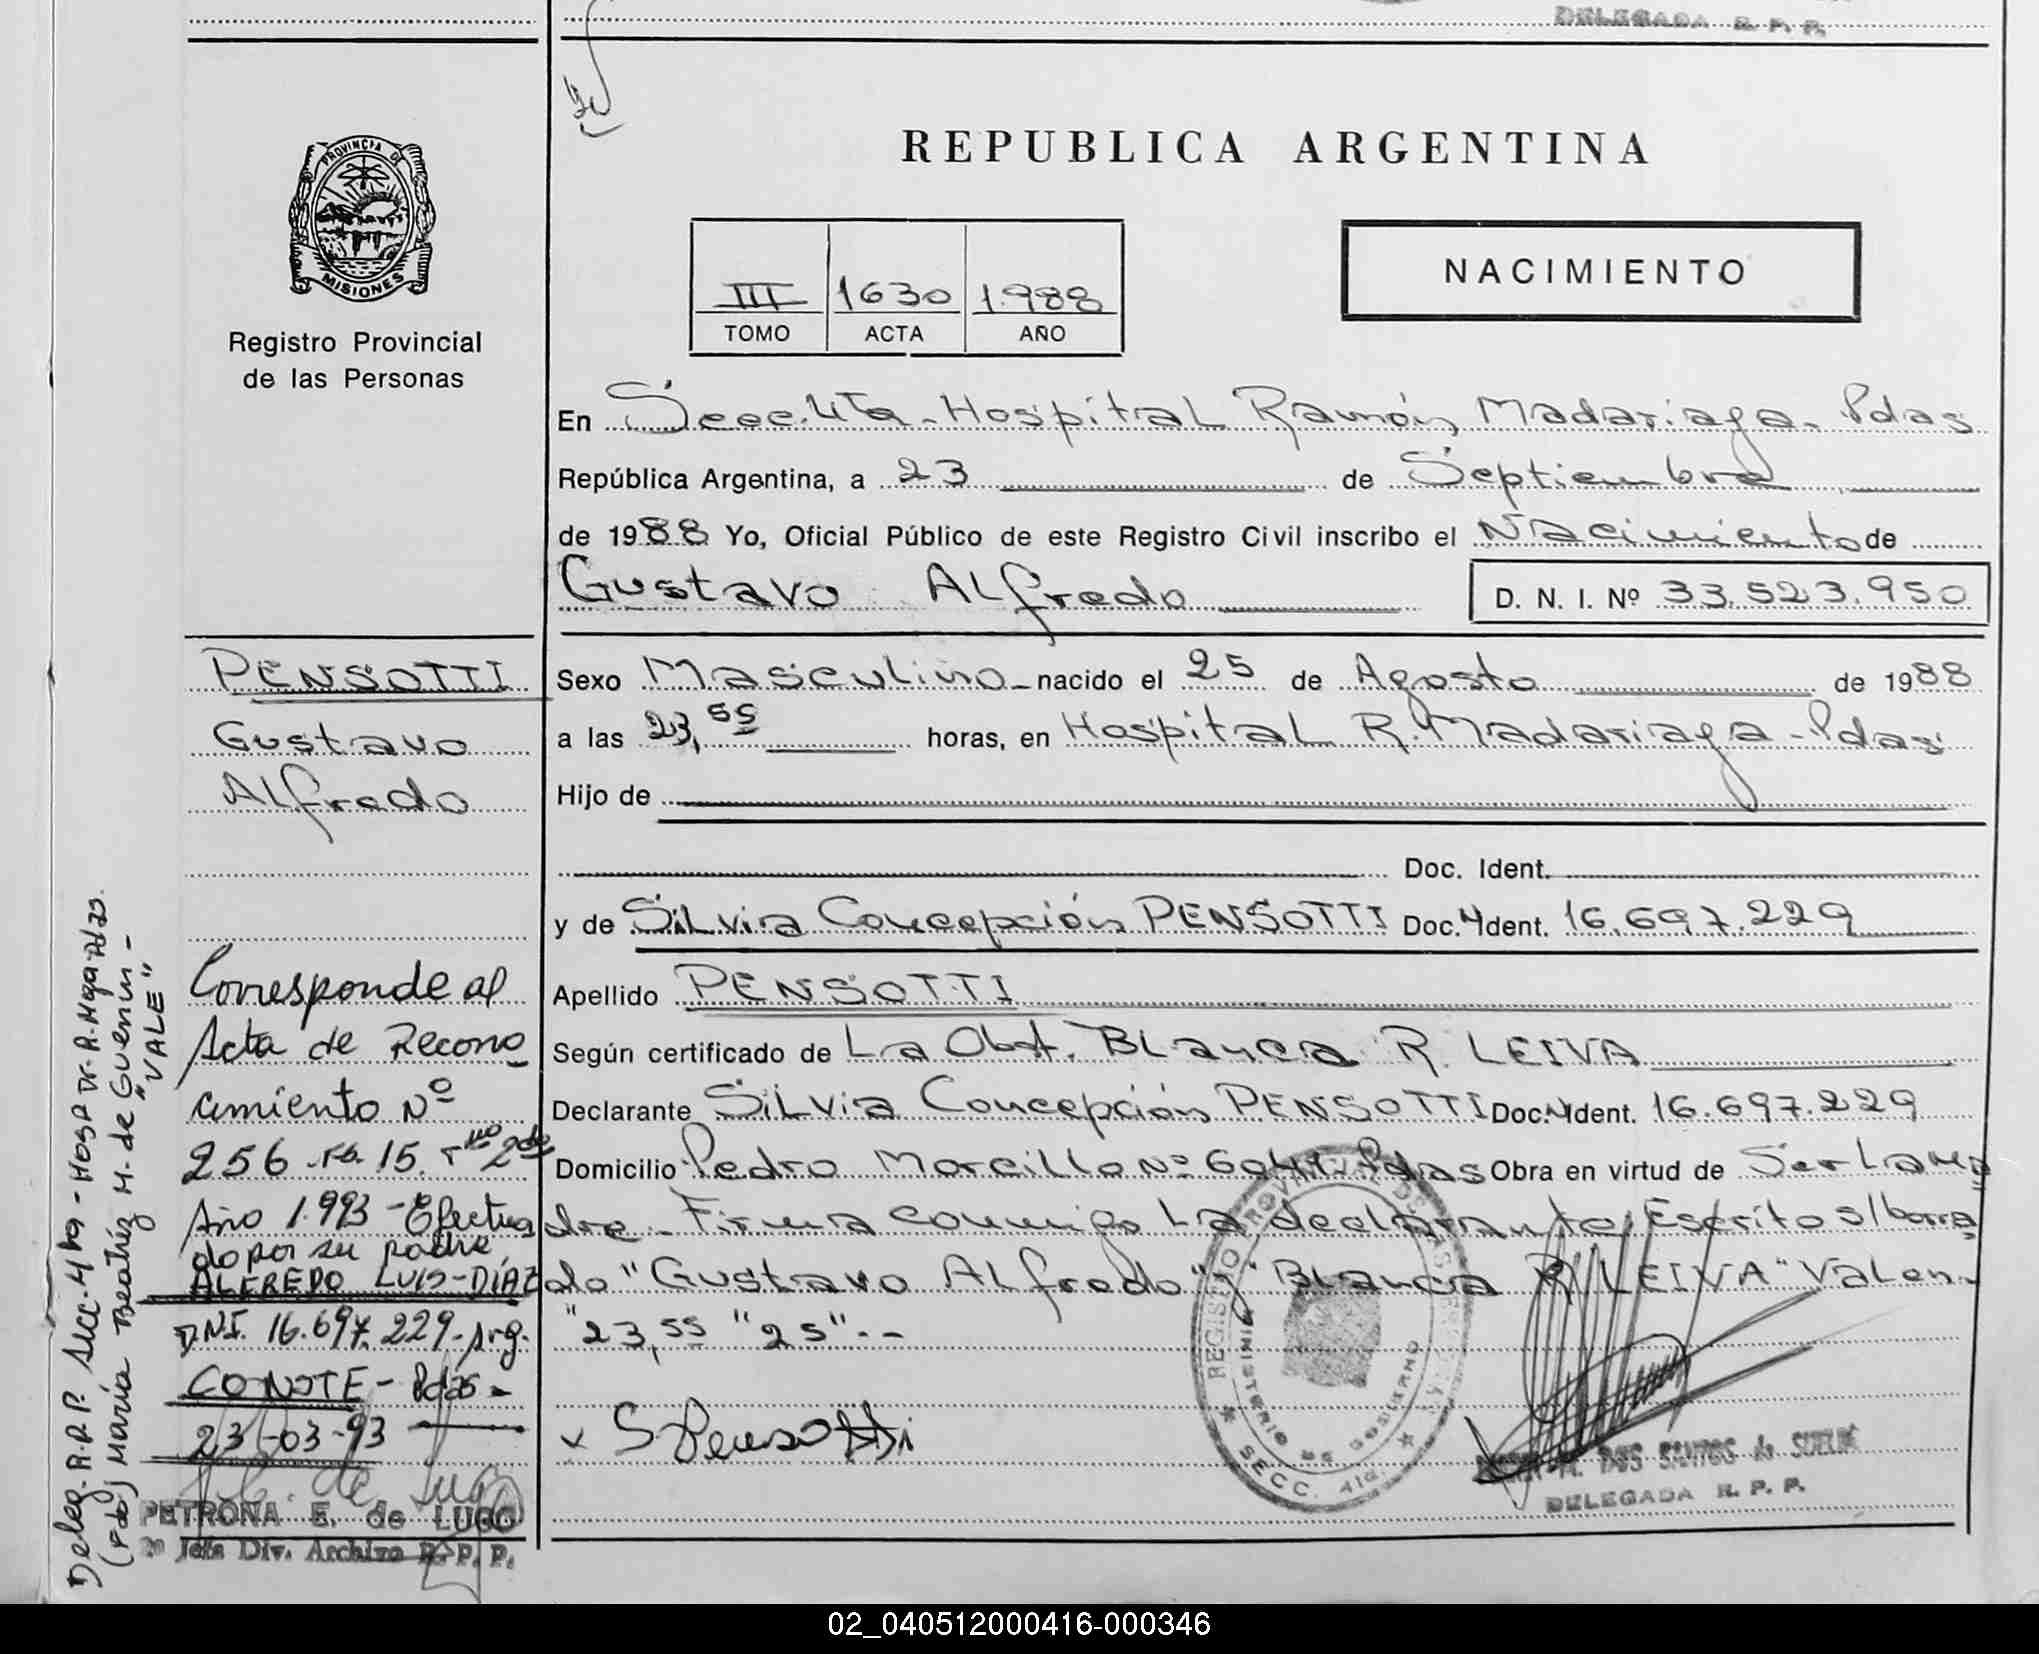 DELEGADA R. P. P.
PROVINCIA DE
MISIONES
Registro Provincial
de las Personas
REPUBLICA ARGENTINA
NACIMIENTO
III 1630 1.988
TOMO ACTA AÑO
En Secc. 4ta - Hospital Ramón Madariaga - Pdas
República Argentina, a 23 de Septiembre
de 1988 Yo, Oficial Público de este Registro Civil inscribo el Nacimiento de
Gustavo Alfredo D. N. I. Nº 33.523.950
Sexo Masculino - nacido el 25 de Agosto de 1988
a las 23,55 horas, en Hospital R. Madariaga - Pdas
Hijo de
Doc. Ident.
y de Silvia Concepción PENSOTTI Doc. Ident. 16.697.229
Apellido PENSOTTI
Según certificado de La Obst. Blanca R. LEIVA
Declarante Silvia Concepción PENSOTTI Doc. Ident. 16.697.229
Domicilio Pedro Morcillo Nº 6041 - Pdas Obra en virtud de Ser La Ma
dre - Firma conmigo La declarante/ Escrito s/borra
do "Gustavo Alfredo" y "Blanca R. LEIVA" Valen -
"23,55 "25" --
x S Pensotti
DELEGADA R. P. P.
REGISTRO PROVINCIAL DE LAS PERSONAS
MINISTERIO DE GOBIERNO
SECC. 4ta.
PENSOTTI
Gustavo
Alfredo
Corresponde al
Acta de Recono
cimiento Nº
256 - Fº. 15. Tmo 2do
Año 1.993 - Efectua
do por su padre
ALFREDO LUIS - DÍAZ
D.N.I. 16.697.229 - Arg.
CONSTE - Pdas -
23-03-93
PETRONA E. de LUGO
2º Jefa Div. Archivo R. P. P.
Deleg. R.P.P. Secc. 4ta - Hosp Dr. R. Mga
María Beatríz H. de Guerin -
"VALE"
02_040512000416-000346